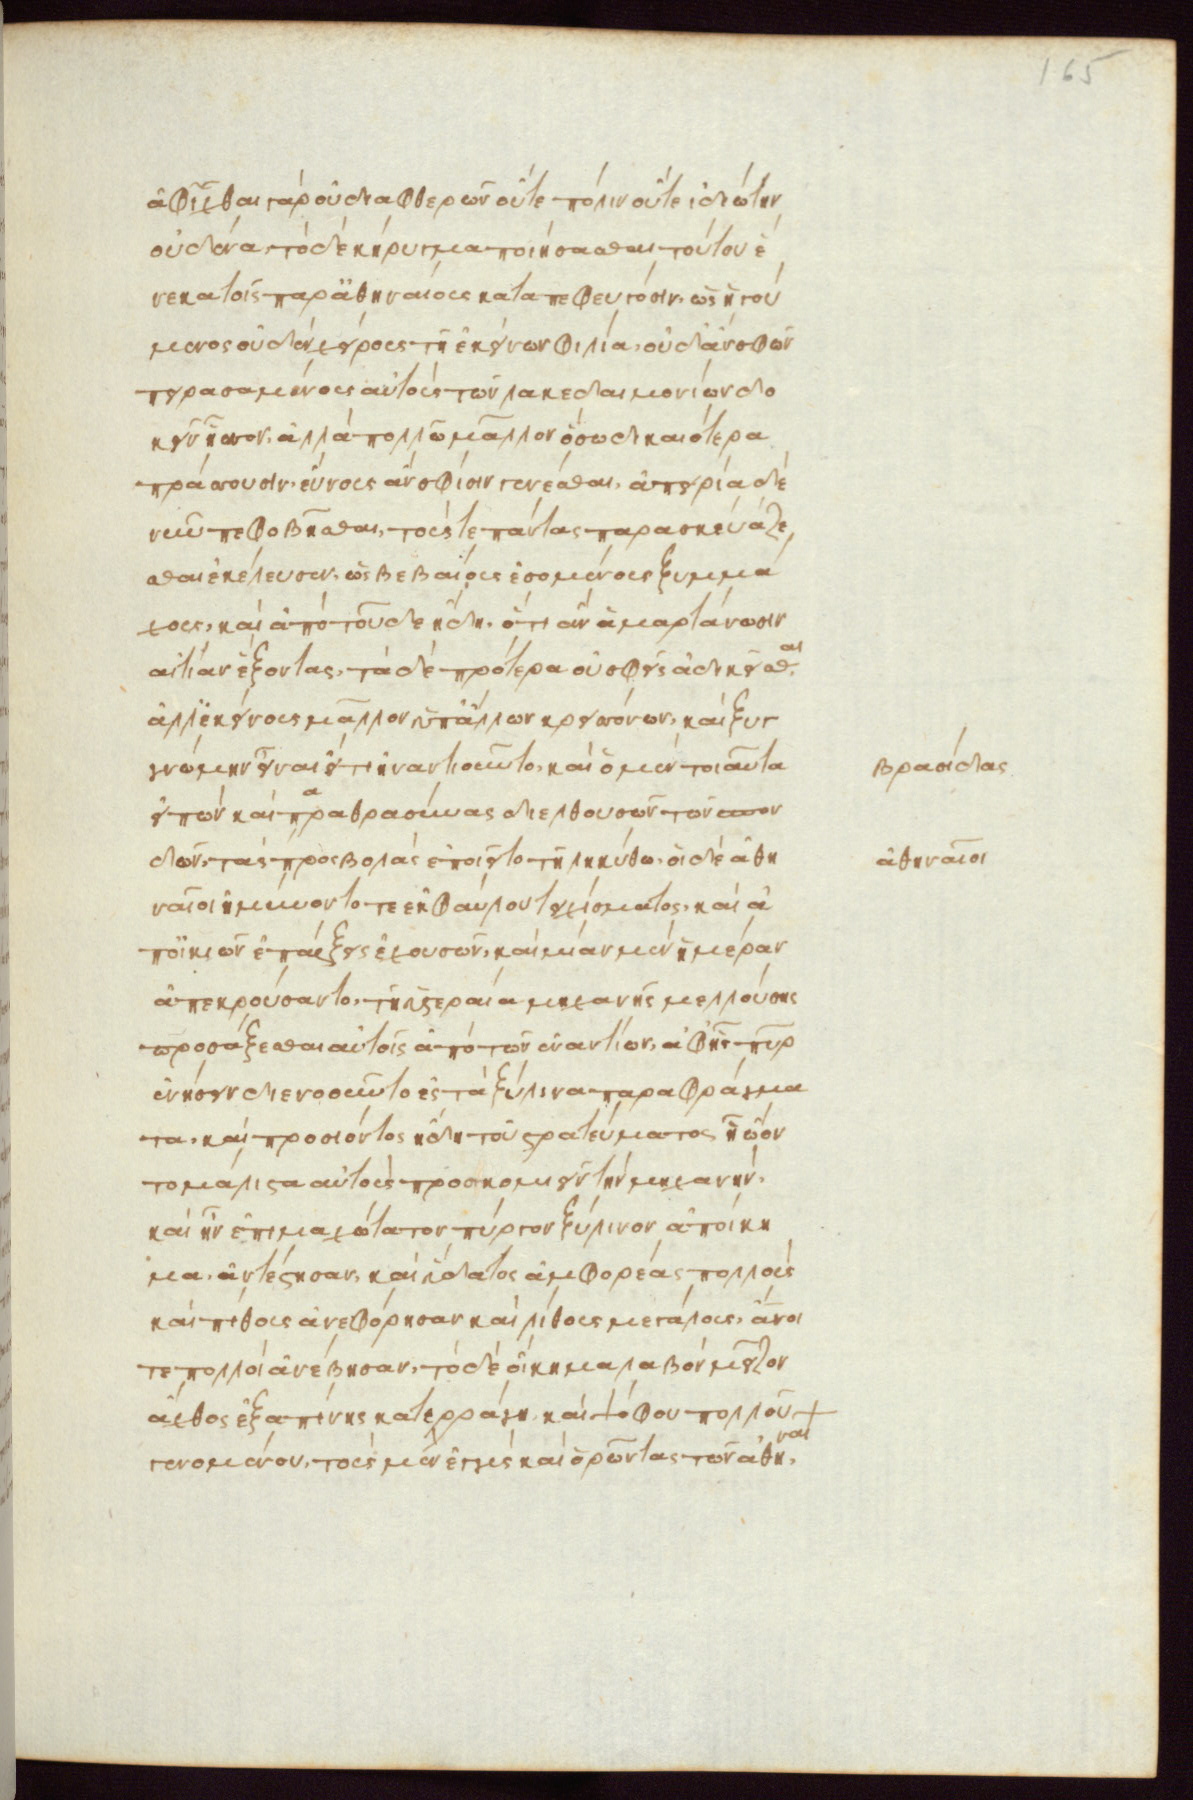 165
ἀφῖχθαι γὰρ οὐ διαφθερῶν οὔτε πόλιν οὔτε ἰδιώτην
οὐδένα, τὸ δὲ κήρυγμα ποιήσασθαι τούτου ἕ
νεκα τοῖς παρ' ἀθηναίους καταπεφευγόσιν, ὡς ἡγού
μενος οὐδὲν χείρους τῇ ἐκείνων φιλίᾳ, οὐδ' ἂν σφῶν
πειρασαμένους αὐτοὺς τῶν λακεδαιμονίων δο
κεῖν ἧσσον, ἀλλὰ πολλῷ μᾶλλον ὅσῳ δικαιότερα
πράσσουσιν, εὔνους ἂν σφίσιν γενέσθαι, ἀπειρίᾳ δὲ
νῦν πεφοβῆσθαι, τούς τε πάντας παρασκευάζε
σθαι ἐκέλευσεν, ὡς βεβαίους ἐσομένους ξυμμά
χους, καὶ ἀπὸ τοῦδε ἤδη, ὅτι ἂν ἁμαρτάνωσιν
αἰτίαν ἕξοντας, τὰ δὲ πρότερα οὐ σφεῖς ἀδικεῖσθαι,
ἀλλ' ἐκείνους μᾶλλον ὑπ' ἄλλων κρεισσόνων, καὶ ξυγ
γνώμην εἶναι εἴ τι ἠναντιοῦντο, καὶ ὁ μὲν τοιαῦτα
εἰπὼν καὶ παραθρασύνας διελθουσῶν τῶν σπον
δῶν, τὰς προσβολὰς ἐποιεῖτο τῇ ληκύθῳ, οἱ δὲ ἀθη
ναῖοι ἠμύνοντό τε ἐκ φαύλου τειχίσματος, καὶ ἀ
π' οἰκιῶν ἐπάλξεις ἐχουσῶν, καὶ μίαν μὲν ἡμέραν
ἀπεκρούσαντο, τῇ δ' ὑστεραίᾳ μηχανῆς μελλούσης
προσάξεσθαι αὐτοῖς ἀπὸ τῶν ἐναντίων, ἀφ' ἧς πῦρ
ἐνήσειν διενοοῦντο ἐς τὰ ξύλινα παραφράγμα
τα, καὶ προσιόντος ἤδη τοῦ στρατεύματος, ᾗ ᾤον
το μάλιστα αὐτοὺς προσκομιεῖν τὴν μηχανήν,
καὶ ἦν ἐπιμαχώτατον πύργον ξύλινον ἀποίκη
μα, ἀντέστησαν, καὶ ὕδατος ἀμφορέας πολλοὺς
καὶ πίθους ἀνεφόρησαν καὶ λίθους μεγάλους, ἄνοι
τε πολλοὶ ἀνέβησαν, τὸ δὲ οἴκημα λαβὸν μεῖζον
ἄχθος ἐξαπίνης κατερράγη, καὶ ψόφου πολλοῦ
γενομένου, τοὺς μὲν ἐγγὺς καὶ ὁρῶντας τῶν ἀθηναι,
βρασίδας
ἀθηναῖοι